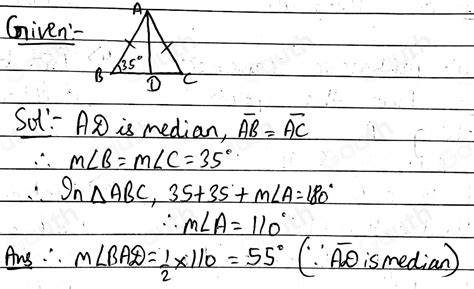 Given:-
A
B 35° D C
Sol':- AD is median, A̅B̅ = A̅C̅
∴ m∠B = m∠C = 35°
∴ In △ABC, 35+35+m∠A=180°
∴ m∠A = 110°
Ans ∴ m∠BAD = 1/2 × 110 = 55° (∵ A̅D̅ is median)